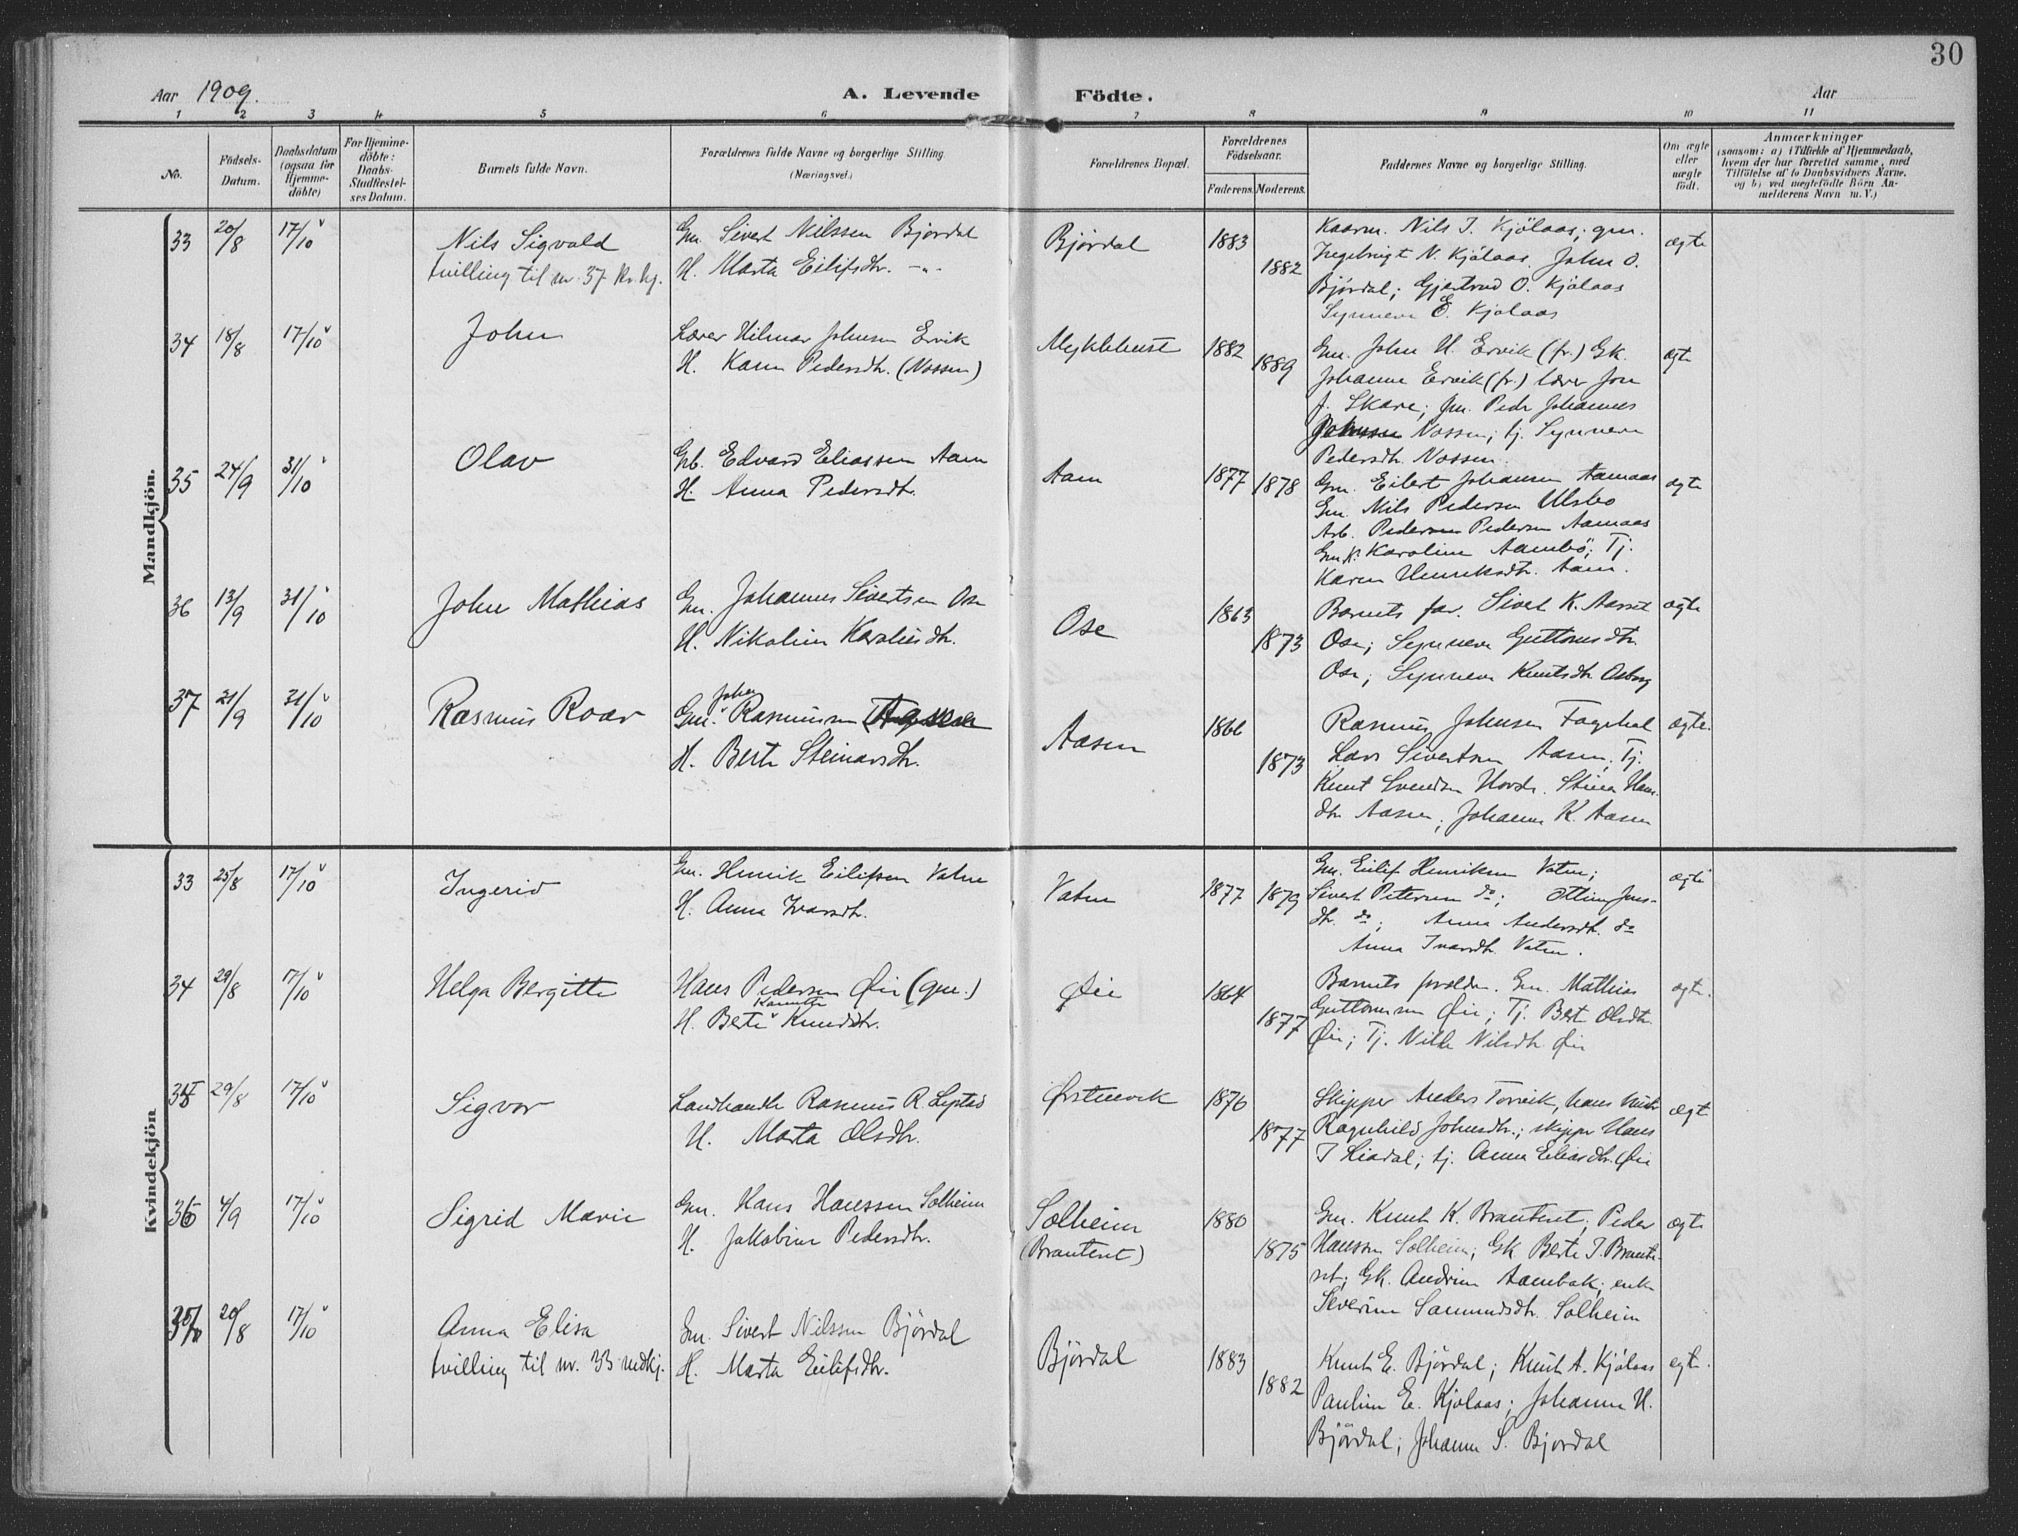 30
Aar 1909.
A. Levende Födte.
Aar
1 2 3 4 5 6 7 8 9 10 11
No.
Födsels-Datum.
Daabsdatum (ogsaa for Hjemmedöbte)
For Hjemmedöbte: Daabs-Stadfæstelses Datum.
Barnets fulde Navn.
Forældrenes fulde Navne og borgerlige Stilling (Næringsvei.)
Forældrenes Bopæl.
Forældrenes Födselsaar.
Faderens. Moderens.
Faddernes Navne og borgerlige Stilling.
Om ægte eller uægte födt.
Anmærkninger
(saasom: a) i Tilfælde af Hjemmedaab,
hvem der har forrettet samme, med
Tilföielse af to Daabsvidners Navne.
og b) ved uægtefödte Börn An-
melderens Navn m. V.)
Mandkjön.
33 20/8 17/10 Nils Sigvald
tvilling til nr. 37 kv.kj.
Gm. Sivert Nilssen Bjørdal
H. Marta Eilifsdtr. -"-
Bjørdal 1883 1882
Kaarm. Nils J. Kjölaas; gm.
Ingebrigt N. Kjölaas, John O.
Bjørdal; Gjertrud O. Kjölaas
Synneve E. Kjölaas
ægte
34 18/8 17/10 John
Lærer Hilmar Johnsen Ervik
H. Karen Pedersdtr. (Vossen)
Myklebust 1882 1889
Gm. John H. Ervik (fr.) Gk.
Johanne Ervik (fr.) lærer Jon
J. Skare; gm. Peder Johannes
Vossen; tj. Synneve
Pedersdtr. Vossen.
ægte
35 24/9 31/10 Olav
Gb. Edvard Eliassen Aam
H. Anna Pedersdtr.
Aam 1877 1878
Gm. Eilert Johansen Aamaas
Gm. Nils Pedersen Ulsbo
Arb. Pedersen Pedersen Aamaas
Gmk. Karoline Aambö; Tj.
Karen Henriksdtr. Aam.
ægte
36 13/9 31/10 John Mathias
Gm. Johannes Sivertsen Ose
H. Nikoline Karolusdtr.
Ose 1863 1873
Barnets far. Sivert K. Aasset
Ose; Synneve Guttormsdtr
Ose; Synneve Knutsdtr
ægte
37 21/9 31/10 Rasmus Roar
Johan
Gm. Rasmussen
H. Berte Steinarsdtr.
Aasen 1866 1873
Rasmus Johnsen
Lars Sivertsen Aasen, Tj.
Knut Svendsen Hovde. Stina Hans-
dtr Aasen; Johanne K. Aasen
ægte.
Kvindekjön
33 25/8 17/10 Ingerid
Gm. Henrik Eilifsen Vatne
H. Anna Ivarsdtr.
Vatne 1877 1879
Gm. Eilif Henriksen Vatne;
Sivert Petersen do; Oline Jens-
dtr. do; Anna Andersdtr. do
Anna Ivarsdtr. Vatne.
ægte
34 29/8 17/10 Helga Bergitte
Hans Pedersen Øie (gm.)
H. Berte Knudsdtr.
Øie 1864 1877
Barnets foreldre. Gm. Mathias
Guttormsen Øie; Tj. Berte Olsdtr.
Øie; Tj. Nilsdtr. Øie
ægte.
35 29/8 17/10 Sigvor
Landhandler Rasmus R. Legstad
H. Marta Olsdtr.
Ørstenvik 1876 1877
Skipper Anders Torvik, hans hustr
Ragnhild Johnsdtr.; skipper Hans
J. Liadal; tj. Anna Eliasdtr. Øie
ægte
36 4/9 17/10 Sigrid Marie
Gm. Hans Hanssen Solheim
H. Jakobine Pedersdtr.
Solheim
(Brauteset)
1880 1875
Gm. Knut K. Brauteset; Peder
Hanssen Solheim; Gk. Berte J. Braute-
set; Gk. Andrine Aambak; enke
Severine Samundsdtr. Solheim
ægte
37 20/8 17/10 Anna Elisa
tvilling til nr. 33 mdkj.
Gm. Sivert Nilssen Bjørdal
H. Marta Eilifsdtr.
Bjørdal 1883 1882
Knut E. Bjørdal; Knut A. Kjölaas
Pauline E. Kjölaas; Johanne H.
Bjørdal; Johanne S. Bjørdal
ægte.